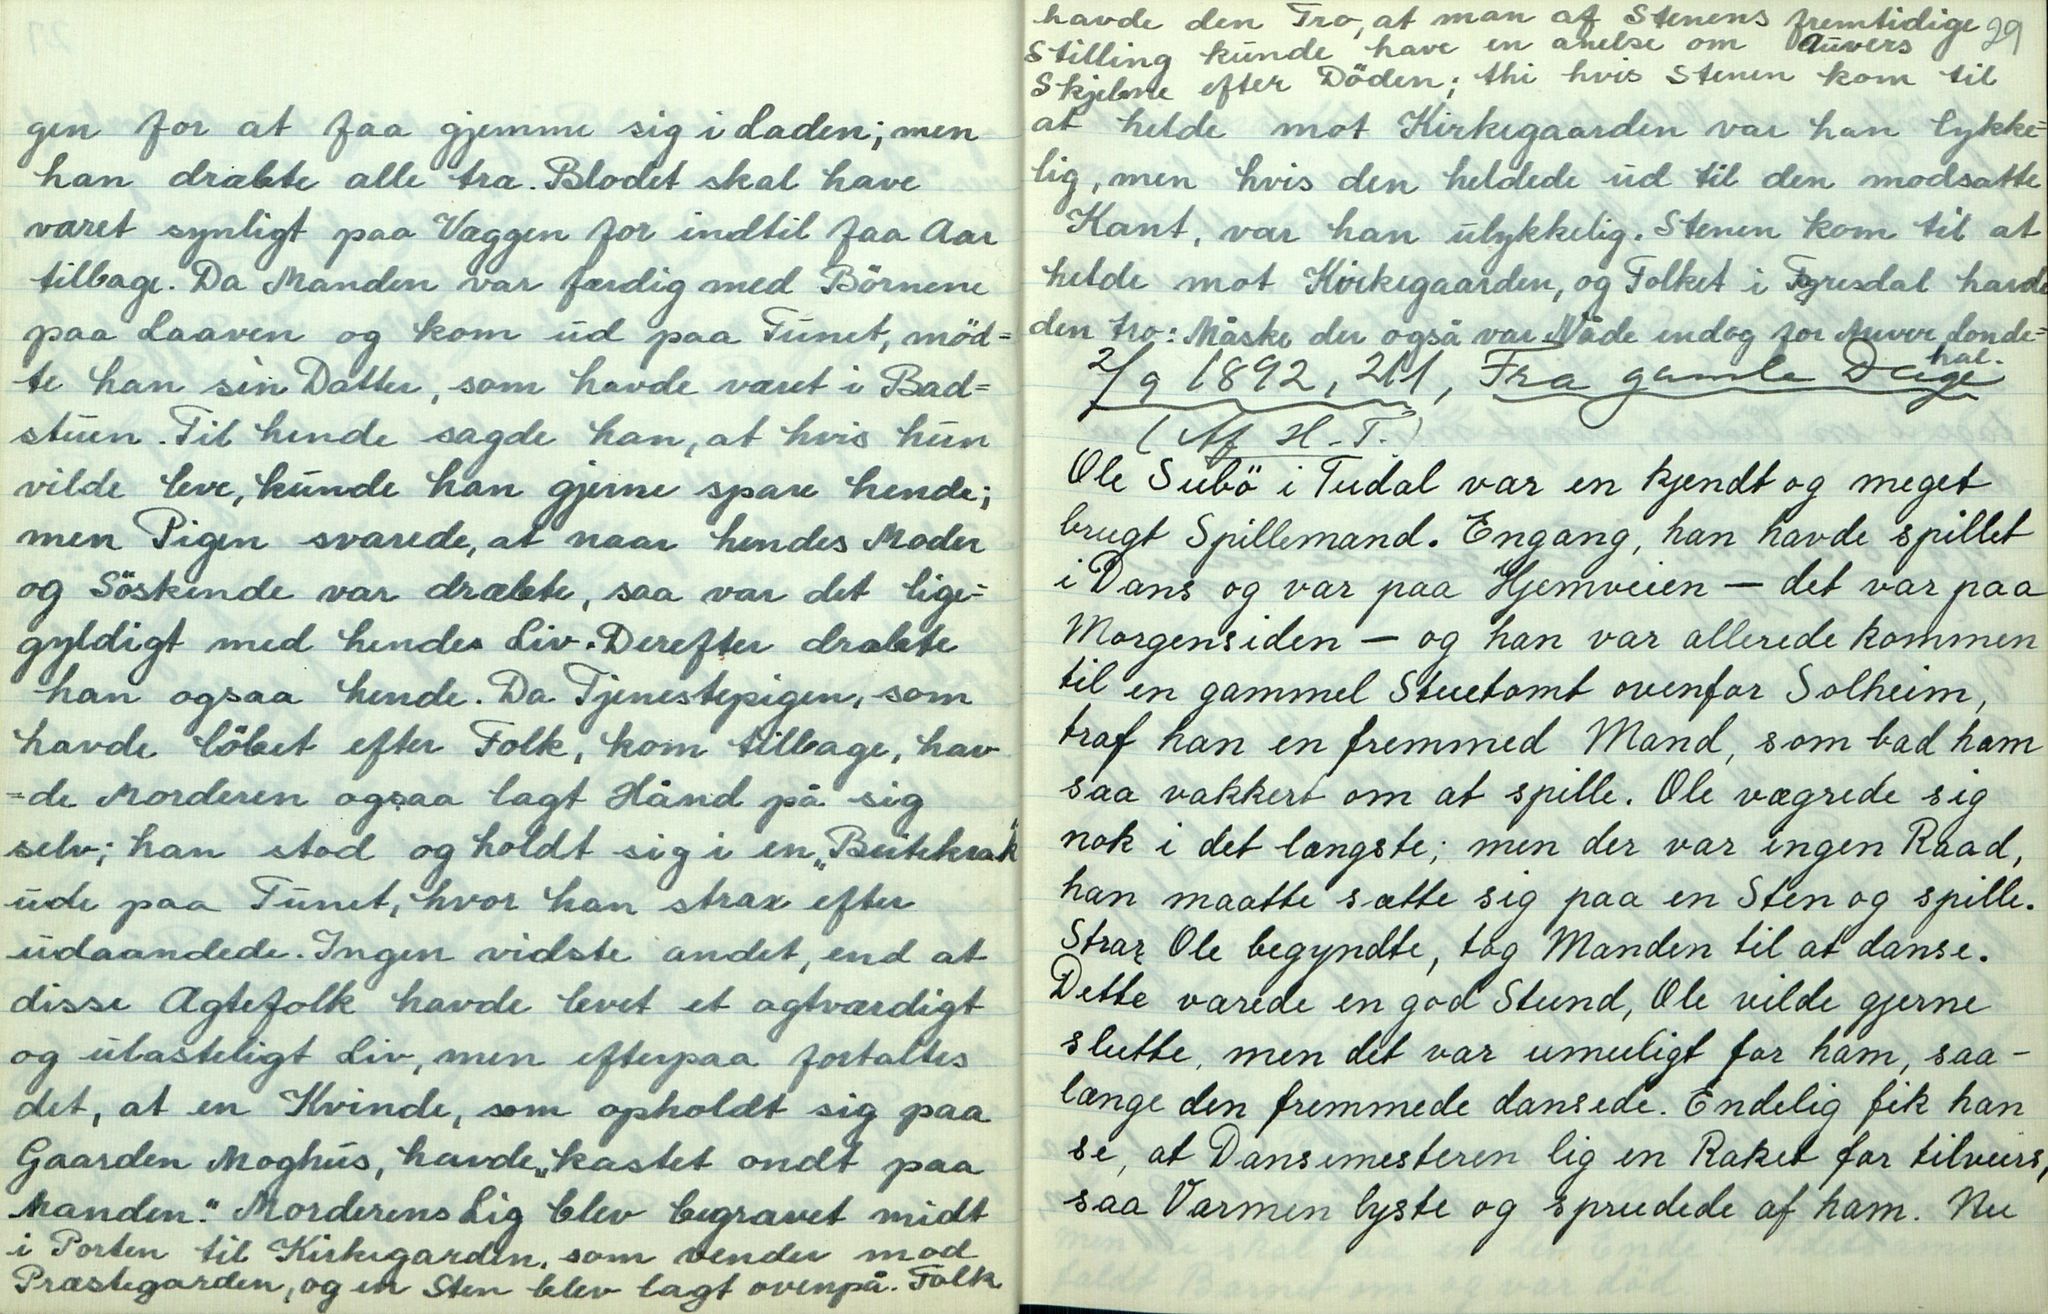 gen for at faa gjemme sig i Laden; men
han dræbte alle tra. Blodet skal have
været synligt paa Væggen for indtil faa Aar
tilbage. Da Manden var færdig med Börnene
paa Laaven og kom ud paa Tunet, möd=
te han sin Datter, som havde været i Bad=
stuen. Til hende sagde han, at hvis hun
vilde leve, kunde han gjerne spare hende;
men Pigen svarede, at naar hendes Moder
og Söskende var dræbte, saa var det lige=
gyldigt med hendes Liv. Derefter dræbte
han ogsaa hende. Da Tjenestepigen, som
havde löbet efter Folk, kom tilbage, hav
=de Morderen ogsaa lagt Hånd på sig
selv; han stod og holdt sig i en „Beitekrak"
ude paa Tunet, hvor han strax efter
udaandede. Ingen vidste andet, end at
disse Ægtefolk havde levet et agtværdigt
og ulasteligt Liv, men efterpaa fortaltes
det, at en Kvinde, som opholdt sig paa
Gaarden Moghus, havde „kastet ondt paa
Manden." Morderens Lig blev begravet midt
i Porten til Kirkegarden, som vender mod
Præstegarden, og en Sten blev lagt ovenpå. Folk
29
havde den Tro, at man af Stenens fremtidige
Stilling kunde have en anelse om Auvers
Skjebne efter Döden; thi hvis Stenen kom til
at helde mot Kirkegaarden var han lykke=
lig, men hvis den heldede ud til den modsatte
Kant, var han ulykkelig. Stenen kom til at
helde mot Kirkegaarden, og Folket i Fyresdal havde
den tro: Måske der også var Nåde endog for Auver Londe=
hal.
2/9 1892, 211, Fra gamle Dage
(Af H. T.)
Ole Subö i Tudal var en kjendt og meget
brugt Spillemand. Engang, han havde spillet
i Dans og var paa Hjemveien – det var paa
Morgensiden – og han var allerede kommen
til en gammel Stuetomt ovenfor Solheim,
traf han en fremmed Mand, som bad ham
saa vakkert om at spille. Ole vægrede sig
nok i det længste; men der var ingen Raad,
han maatte sætte sig paa en Sten og spille.
Strax Ole begyndte, tog Manden til at danse.
Dette varede en god Stund, Ole vilde gjerne
slutte, men det var umuligt for ham, saa-
længe den fremmede dansede. Endelig fik han
se, at Dansemesteren lig en Raket for tilveirs,
saa Varmen lyste og sprudede af ham. Nu